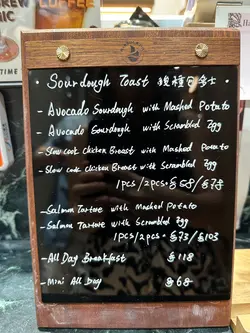 BREW
COFFEE
TIME
· Sourdough Toast 酸種包多士 ·
- Avocado Sourdough with Mashed Potato
- Avocado Sourdough with Scrambled Egg
- Slow cook Chicken Breast with Mashed Potato
- Slow cook Chicken Breast with Scrambled Egg
1pcs/2pcs $68/$78
- Salmon Tartare with Mashed Potato
- Salmon Tartare with Scrambled Egg
1pcs/2pcs $73/$103
- All Day Breakfast $118
- Mini All Day $68